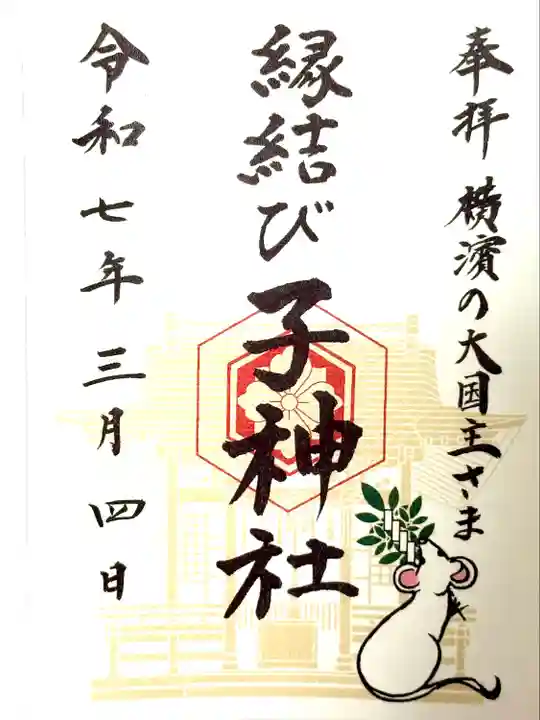 奉拝 横濱の大国主さま
縁結び子神社
令和七年三月四日